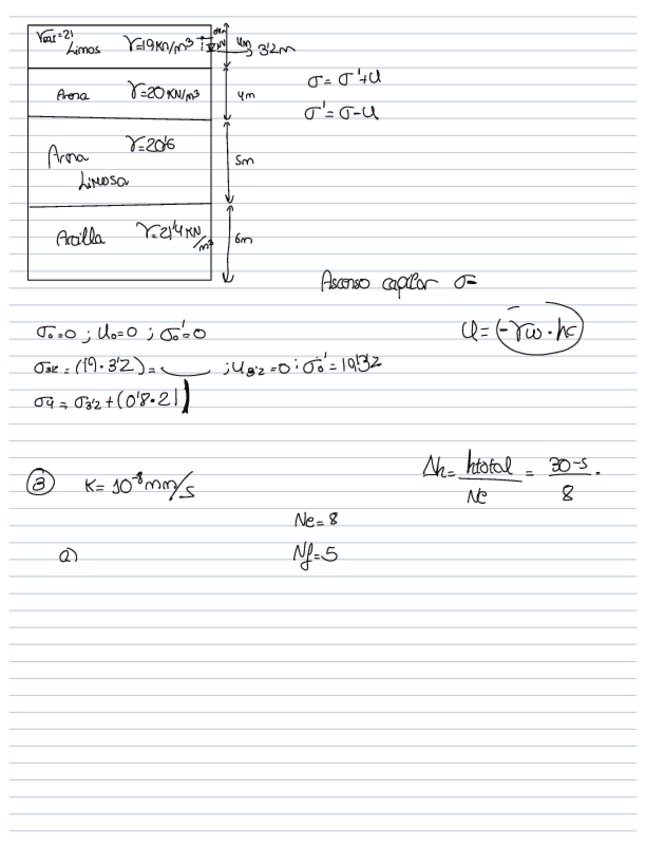 γsat=21
Limos γ=19KN/m³ 4m 3'2m
Arena γ=20KN/m³ 4m
σ=σ'+U
σ'=σ-U
Arena γ=20'6
Limosa 5m
Arcilla γ=21'4KN/m³ 6m
Ascenso capilar σ=
σ₀=0 ; U₀=0 ; σ₀'=0
U=(-γω·hc)
=(19·3'2)= ; U3'2=0 : σ₀'=19·3'2
σ4=σ3'2+(0'8·21)
③ K=10⁻⁸mm/s
Δh= htotal/Nc = 30-5/8 .
Ne=8
a) Nf=5